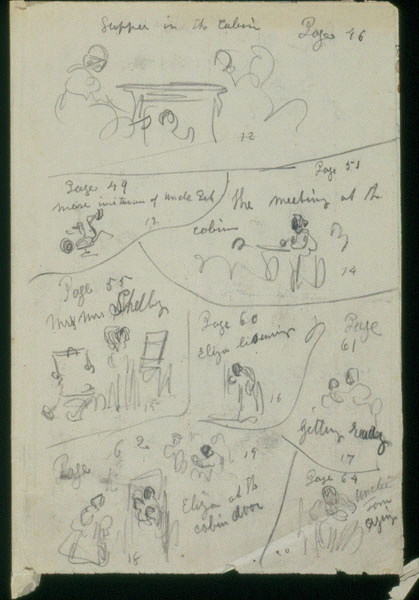 Supper in the Cabin Page 46
12
Page 49
Mose imitation of Uncle
13
Page 51
The meeting at the
cabin
14
Page 55
Mr & Mrs Shelby
15
Page 60
Eliza listening
16
Page
61
Getting Ready
17
Page 62
19
Eliza at the
cabin door
18
Page 64
Uncle
Tom
20